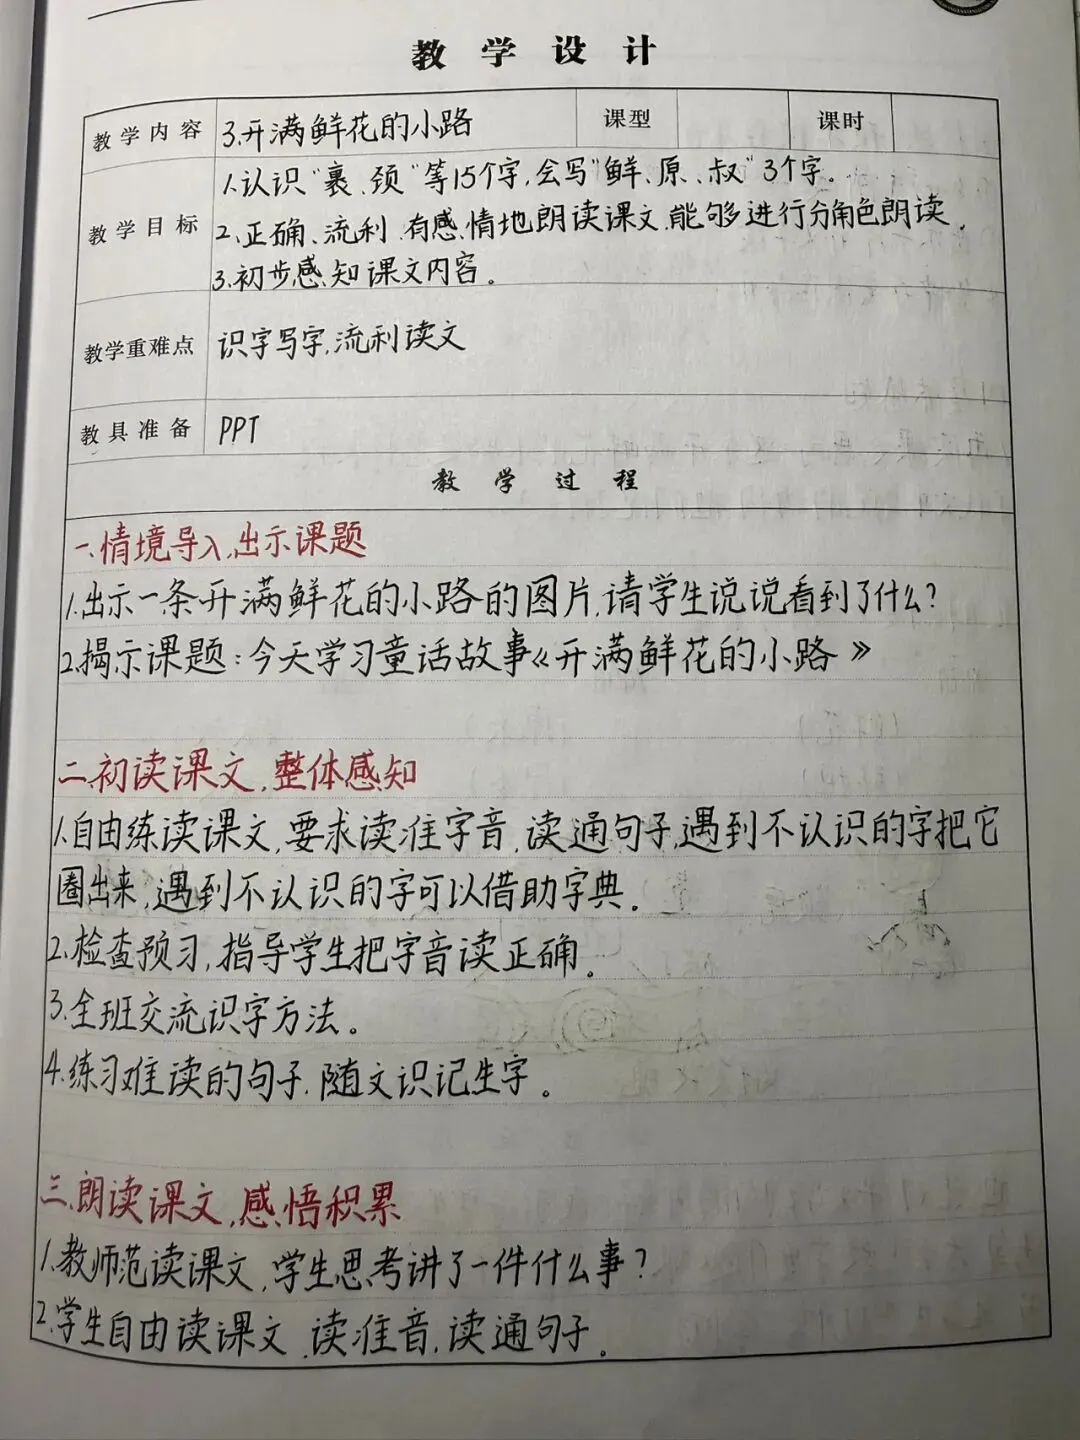 教学设计
教学内容 3.开满鲜花的小路 课型 课时
教学目标
1.认识“裹、颈”等15个字,会写“鲜、原、叔”3个字。
2.正确、流利、有感情地朗读课文,能够进行分角色朗读.
3.初步感知课文内容。
教学重难点 识字写字,流利读文
教具准备 PPT
教学过程
一.情境导入,出示课题
1.出示一条开满鲜花的小路的图片,请学生说说看到了什么?
2.揭示课题:今天学习童话故事《开满鲜花的小路》
二.初读课文,整体感知
1.自由练读课文,要求读准字音,读通句子,遇到不认识的字把它
圈出来,遇到不认识的字可以借助字典.
2.检查预习,指导学生把字音读正确.
3.全班交流识字方法。
4.练习难读的句子.随文识记生字。
三.朗读课文,感悟积累
1.教师范读课文,学生思考讲了一件什么事?
2.学生自由读课文.读准音,读通句子.